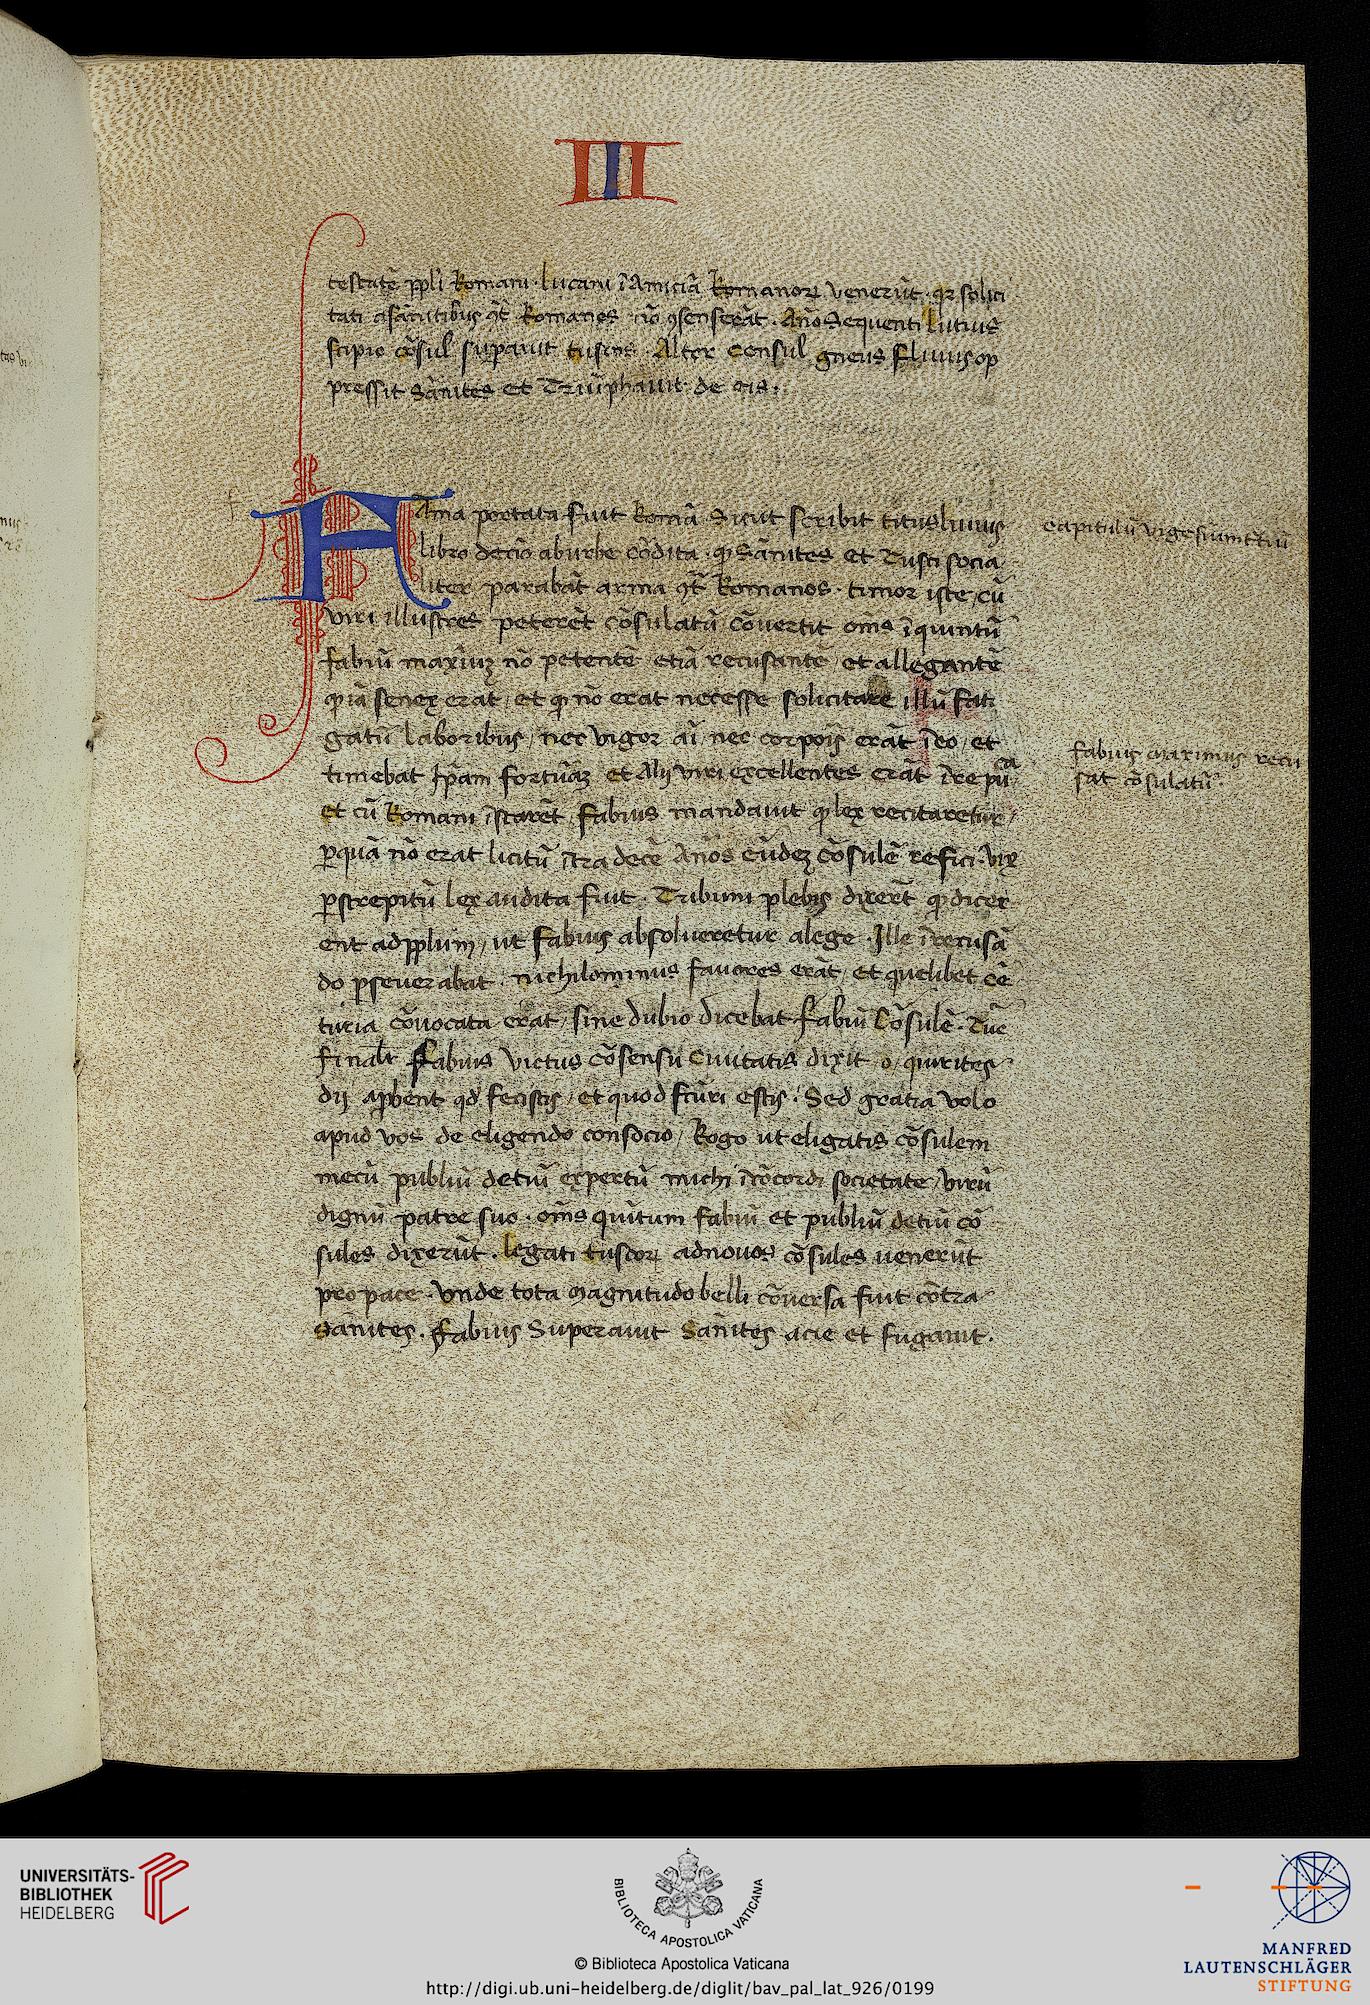 86
III
testatē ppl̄i Romani · lucani ī Amiciā Romanoꝝ venerūt · qꝛ solici
tati a sānitibus ꝯt̄ Romanos nō ꝯsenserāt · Año sequenti lutius
scipio cōsul supauit tuscos · Alter consul gneus fluuius op
pressit sānites et Triūphauit de eis ·
Ama portata fuit Romā · Sicut scribit titus liuius
libro decīo ab urbe cōdita · ꝙ sānites et Tusci socia
liter parabāt arma ꝯt̄ Romanos · timor iste / cū
viri illustres peterēt cōsulatū cōuertit om̄s ī quintū
fabiū maximꝫ nō petentē etiā recusantē / et allegantē
ꝙ iā senex erat / et ꝙ nō erat necesse solicitare illū fati
gatū laboribus / nec vigor ai͞ / nec corpoīs erāt ī eo / et
timebat ip̄am fortunaꝫ et Alij viri excellentes erāt ī re pu͞ca
et cū Romani īstarēt fabius mandauit ꝙ lex recitaretur /
ꝑ quā nō erat licitū īfra decē Años eūdeꝫ cōsulē refici · vix
ꝑ strepitū lex audita fuit · Tribuni plebis dixerūt ꝙ dicer
ent ad ppl̄um / ut fabius absolueretur a lege · Ille ī recusā
do pseuerabat · nichilominus fauores erāt / et quelibet cē
turia cōuocata erat / sine dubio dicebat fabiū Cōsulē · Tūc
finalr̄ Fabius victus cōsensu Ciuitatis dixit o / quirites
dij apbent qd̄ fecistis / et quod fcūri estis · Sed gratia volo
apud vos de eligendo consocio / Rogo ut eligatis cōsulem
mecū publiū detiū expertū michi ī cōcordi societate / virū
dignū patre suo · om̄s quītum fabiū et publiū detiū cō
sules dixerūt · legati tuscoꝝ ad nouos cōsules venerūt
pro pace · vnde tota magnitudo belli cōuersa fuit cōtra
sānites · Fabius Superauit Sānites acie et fugauit ·
capitulū vigesiumtertiū
fabius maximus recu
sat cōsulatū ·
UNIVERSITÄTS-
BIBLIOTHEK
HEIDELBERG
BIBLIOTECA APOSTOLICA VATICANA
© Biblioteca Apostolica Vaticana
http://digi.ub.uni-heidelberg.de/diglit/bav_pal_lat_926/0199
MANFRED
LAUTENSCHLÄGER
STIFTUNG